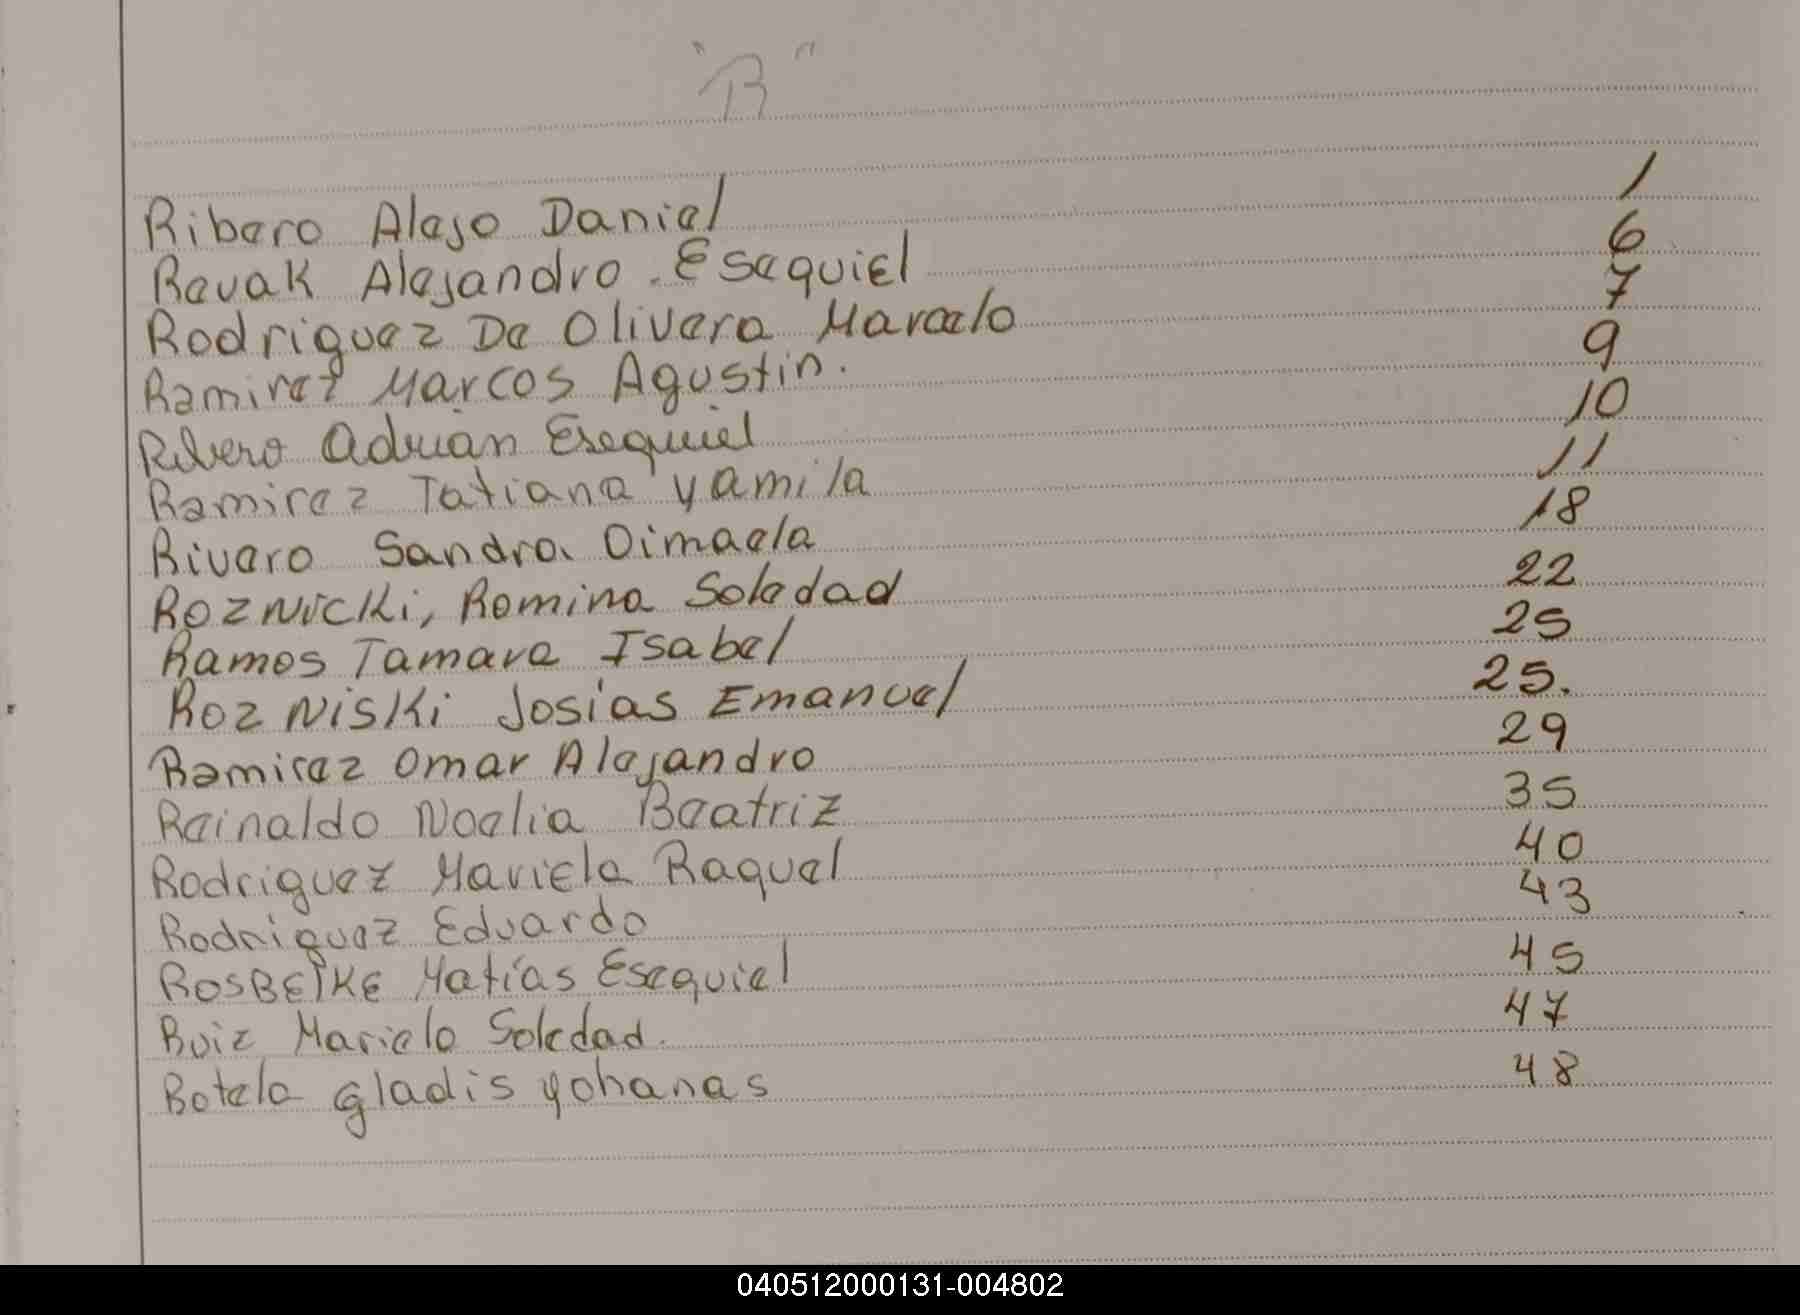 "R"
Ribero Alejo Daniel 1
Revak Alejandro Esequiel 6
Rodriguez De Olivera Marcelo 7
Ramirez Marcos Agustin. 9
Rivero Adrian Esequiel 10
Ramirez Tatiana yamila 11
Rivero Sandra Dimaela 18
Roznicki, Romina Soledad 22
Ramos Tamara Isabel 25
Rozniski Josías Emanuel 25.
Ramirez Omar Alejandro 29
Reinaldo Noelia Beatriz 35
Rodriguez Mariela Raquel 40
Rodriguez Eduardo 43
ROSBEIKE Matías Esequiel 45
Ruiz Mariela Soledad. 47
Rotela gladis yohanas 48
040512000131-004802